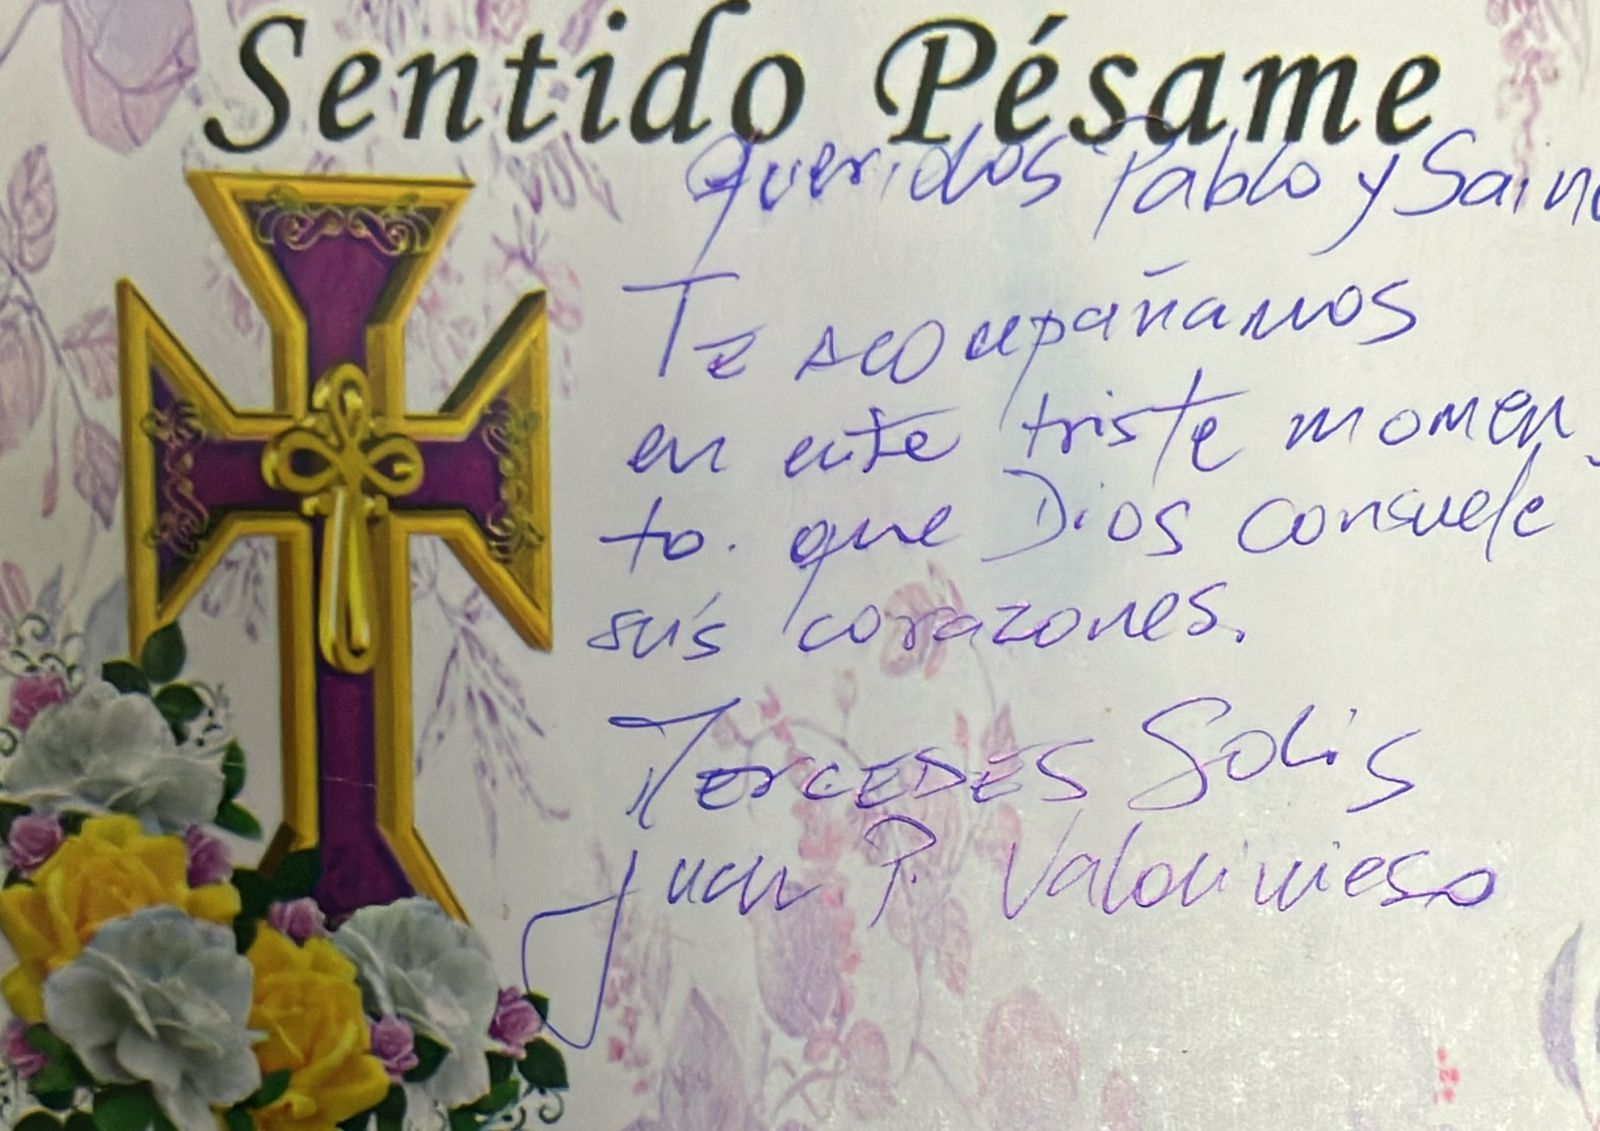 Sentido Pésame
Queridos Pablo y
Te acompañamos
en este triste momen
to. que Dios consuele
sus corazones.
Mercedes Solis
Juan P. Valdivieso